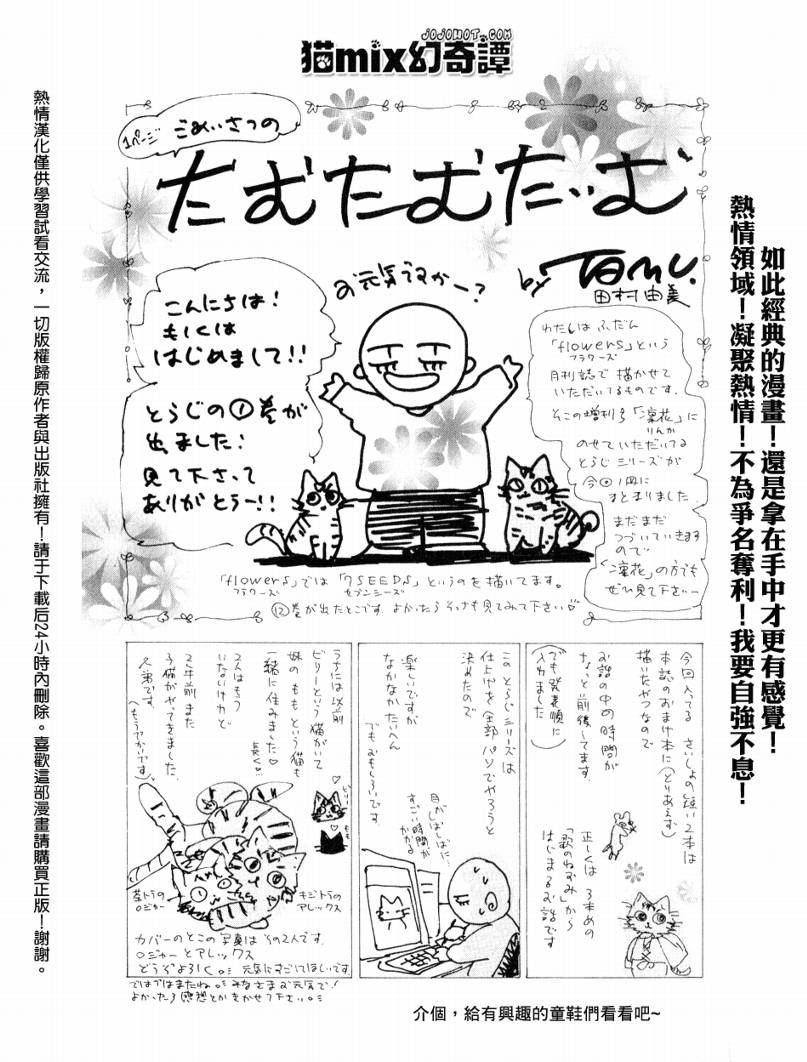 JOJOHOT.COM
猫mix幻奇譚
1ページ ごあいさつの
たむたむたいむ
by Tamu.
田村由美
お元気ですかー?
こんにちは!
もしくは
はじめまして!!
とらじの①巻が
出ました!
見て下さって
ありがとうー!!
わたしは ふだん
「flowers」という
フラワーズ
月刊誌で 描かせて
いただいてるものです.
そこの増刊号「凜花」に
りんか
のせていただいてる
とらじシリーズが
今回1冊に
まとまりました
まだまだ
つづいていきます
ので
「凜花」の方でも
ぜひ見て下さいー
「flowers」では「7SEEDS」というのを描いてます。
フラワーズ
セブンシーズ
⑫巻が出たとこです よかったら そっちも見てみて下さい♡
今回入ってる さいしょの短い2本は
本誌のおまけ本に(とりあえず)
描いたやつなので
お話の中の時間が
ちょっと前後してます.
(でも発表順に
入れました)
正しくは 3本めの
「歌のねずみ」から
はじまるお話です
このとらじシリーズは
仕上げを全部パソでやろうと
決めたので
楽しいですが
なかなかたいへん
でもおもしろいです
目がしばしばに…
すごい時間が
かかる
うちには以前
ビリーという猫がいて
妹のももという猫も
一緒に住みました♡
長く…
2人はもう
いないけれど
2年前また
子猫がやってきました.
兄弟です.
(もうでかいです)
ビリー
もも
茶トラの
ロジャー
キジトラの
アレックス
カバーのとこの写真は その2人です.
ロジャーとアレックス
どうぞよろしく。 元気にすごしてほしいです
ではではまたね。 みなさまお元気で!
よかったら感想とかきかせて下さい。
熱情漢化僅供學習試看交流,一切版權歸原作者與出版社擁有!請于下載后24小時內刪除。喜歡這部漫畫請購買正版!謝謝。
如此經典的漫畫!還是拿在手中才更有感覺!
熱情領域!凝聚熱情!不為爭名奪利!我要自強不息!
介個,給有興趣的童鞋們看看吧~